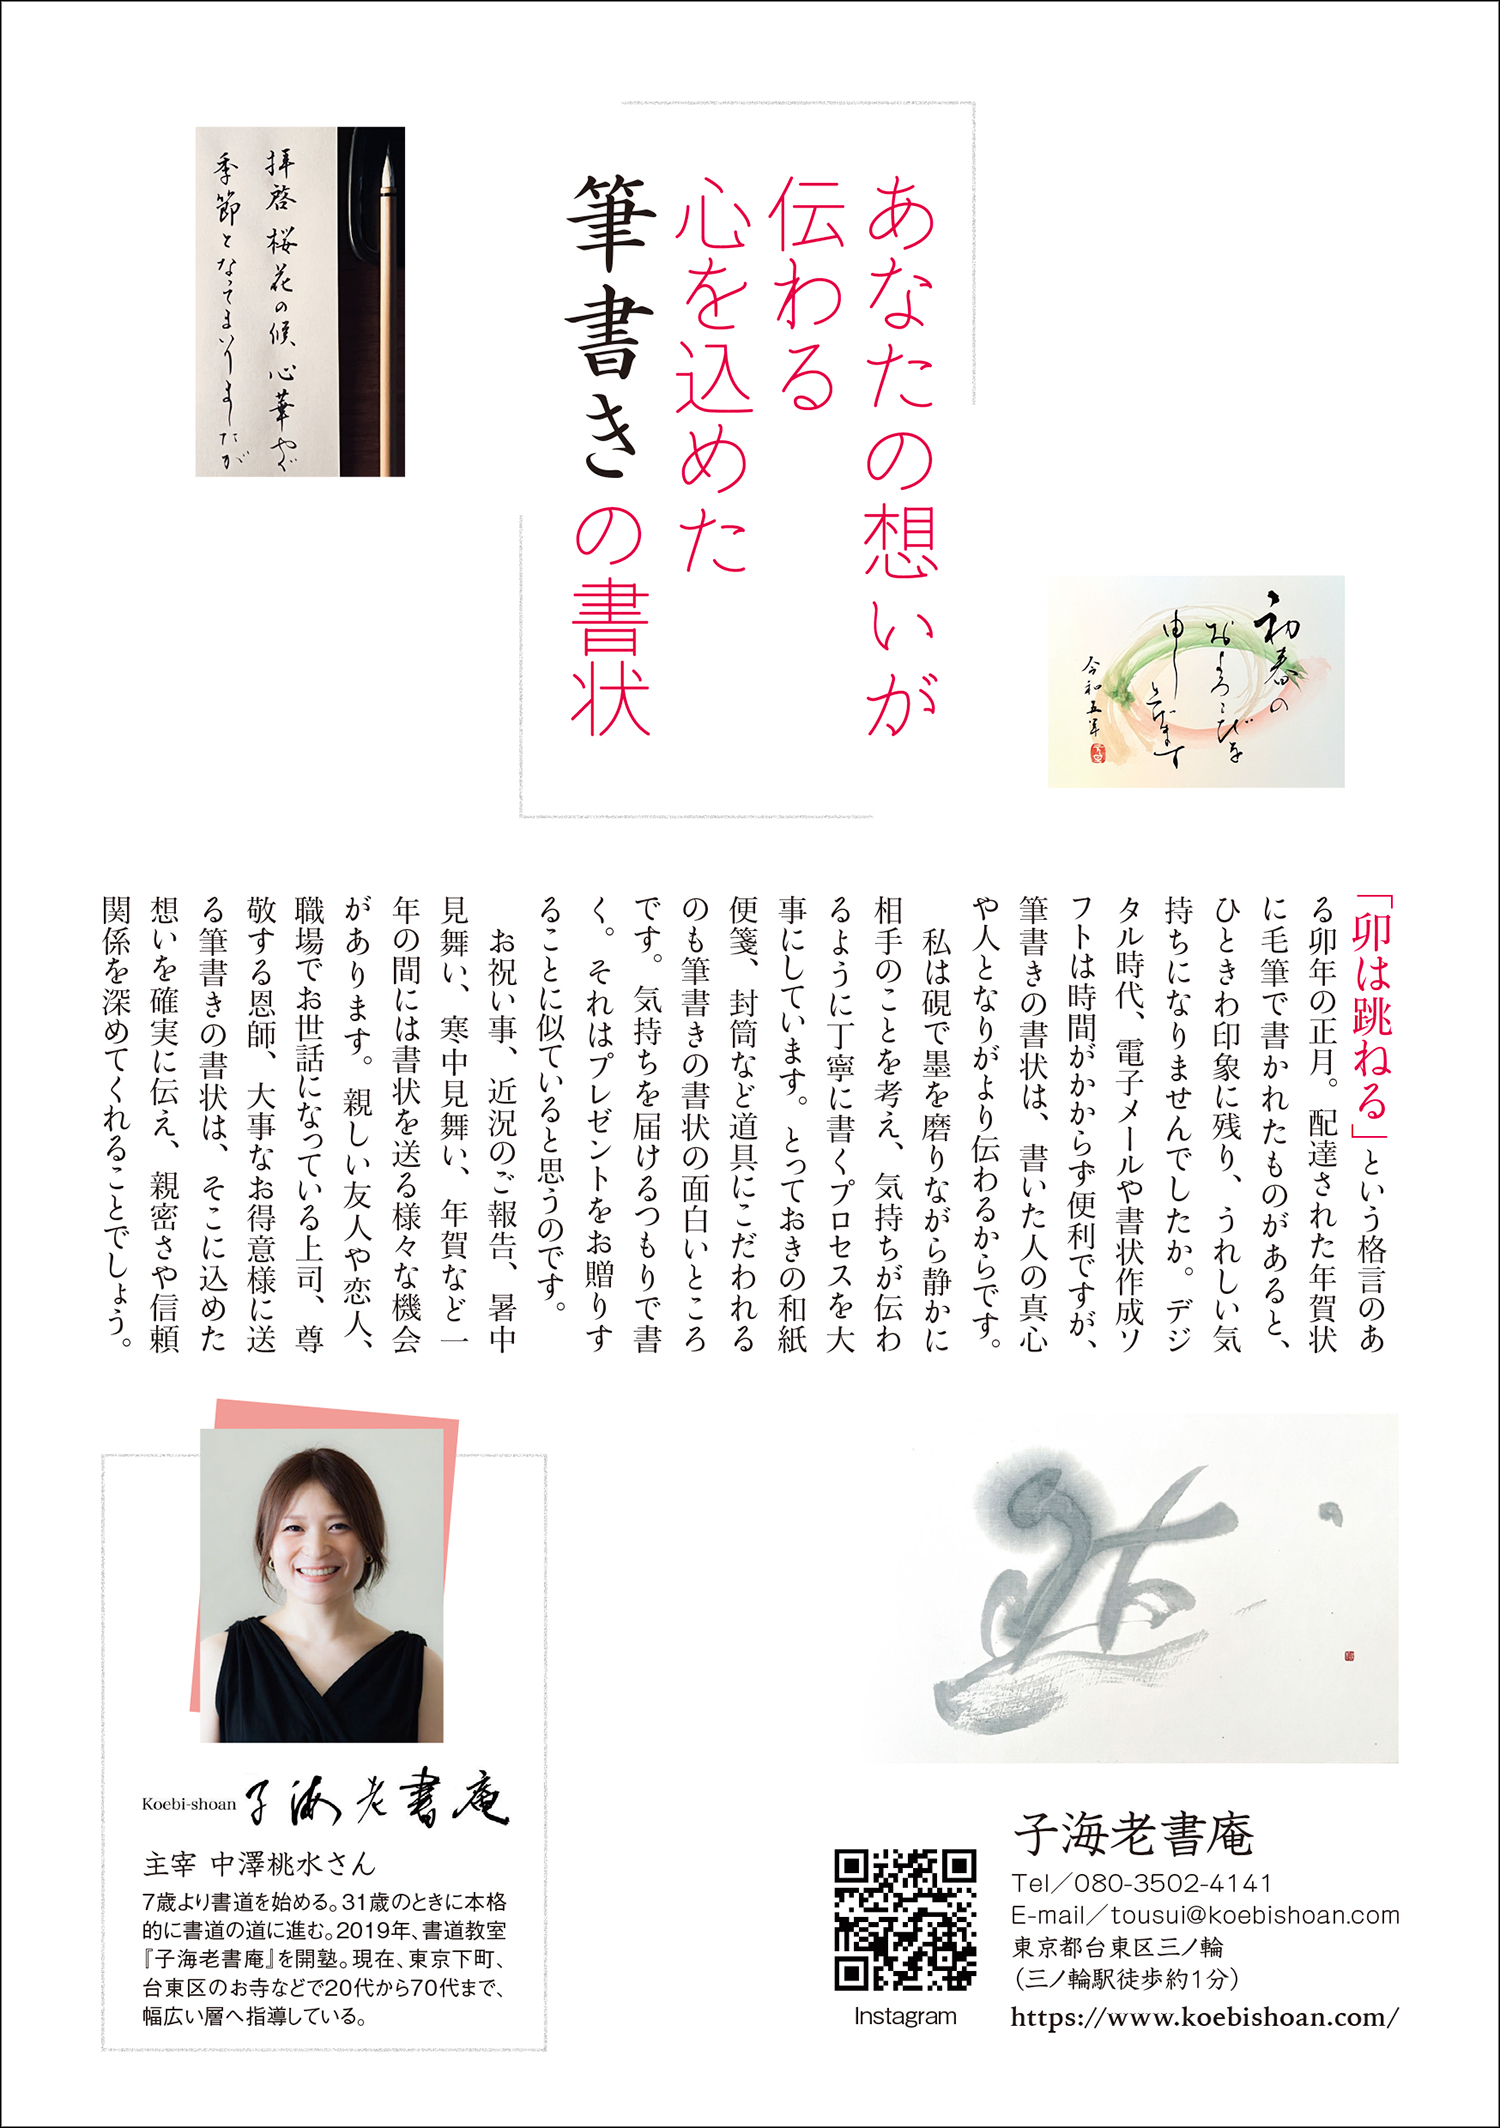 あなたの想いが
伝わる
心を込めた
筆書きの書状
拝啓 桜花の候 心華やぐ
季節となってまいりましたが
初春の
およろこびを
申し上げます
令和五年
「卯は跳ねる」という格言のあ
る卯年の正月。配達された年賀状
に毛筆で書かれたものがあると、
ひときわ印象に残り、うれしい気
持ちになりませんでしたか。デジ
タル時代、電子メールや書状作成ソ
フトは時間がかからず便利ですが、
筆書きの書状は、書いた人の真心
や人となりがより伝わるからです。
私は硯で墨を磨りながら静かに
相手のことを考え、気持ちが伝わ
るように丁寧に書くプロセスを大
事にしています。とっておきの和紙
便箋、封筒など道具にこだわれる
のも筆書きの書状の面白いところ
です。気持ちを届けるつもりで書
く。それはプレゼントをお贈りす
ることに似ていると思うのです。
お祝い事、近況のご報告、暑中
見舞い、寒中見舞い、年賀など一
年の間には書状を送る様々な機会
があります。親しい友人や恋人、
職場でお世話になっている上司、尊
敬する恩師、大事なお得意様に送
る筆書きの書状は、そこに込めた
想いを確実に伝え、親密さや信頼
関係を深めてくれることでしょう。
Koebi-shoan 子海老書庵
主宰 中澤桃水さん
7歳より書道を始める。31歳のときに本格
的に書道の道に進む。2019年、書道教室
『子海老書庵』を開塾。現在、東京下町、
台東区のお寺などで20代から70代まで、
幅広い層へ指導している。
Instagram
子海老書庵
Tel／080-3502-4141
E-mail／tousui@koebishoan.com
東京都台東区三ノ輪
（三ノ輪駅徒歩約1分）
https://www.koebishoan.com/